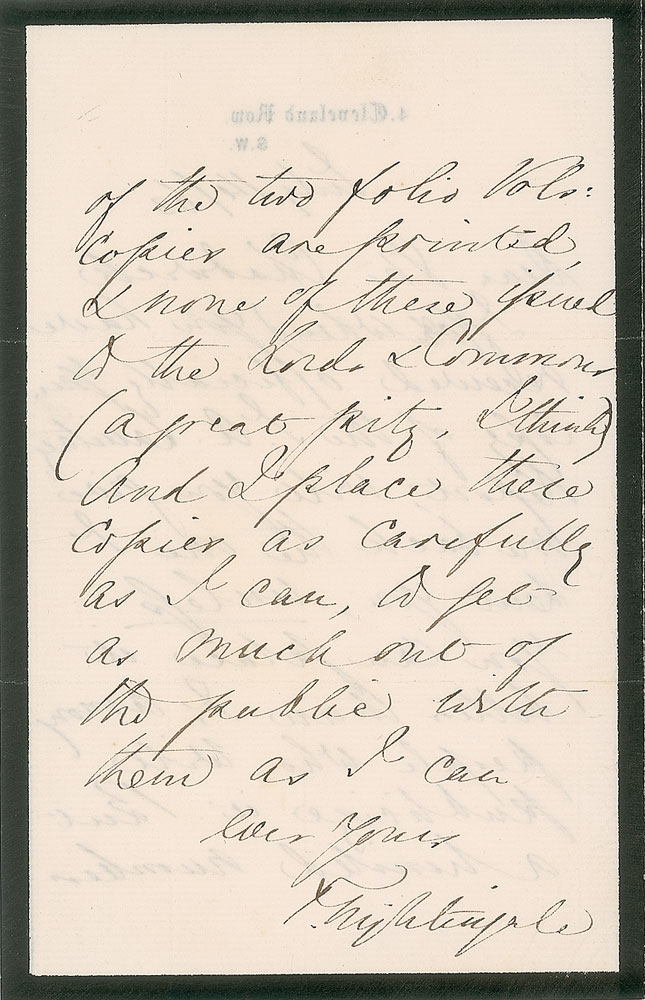 4, Cleveland Row
S.W.
of the two folio Vols:
copies are printed,
& none of these issued
to the Lords & Commons
(a great pity, I think)
And I place these
copies as carefully
as I can, to get
as much out of
the public with
them as I can
ever yours
F. Nightingale